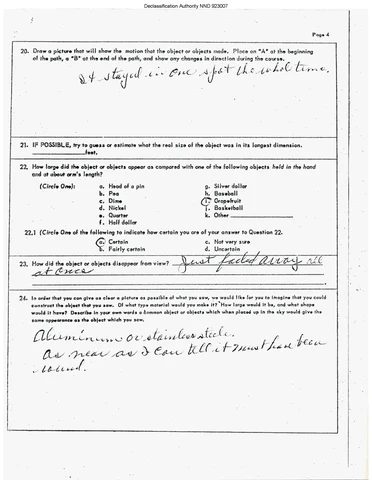 Declassification Authority NND 923007
Page 4
20. Draw a picture that will show the motion that the object or objects made. Place an "A" at the beginning
of the path, a "B" at the end of the path, and show any changes in direction during the course.
It stayed in one spot the whol time.
21. IF POSSIBLE, try to guess or estimate what the real size of the object was in its longest dimension.
feet.
22. How large did the object or objects appear as compared with one of the following objects held in the hand
and at about arm's length?
(Circle One): a. Head of a pin g. Silver dollar
b. Pea h. Baseball
c. Dime i. Grapefruit
d. Nickel j. Basketball
e. Quarter k. Other
f. Half dollar
22.1 (Circle One of the following to indicate how certain you are of your answer to Question 22.
a. Certain c. Not very sure
b. Fairly certain d. Uncertain
23. How did the object or objects disappear from view? Just faded away all
at once
24. In order that you can give as clear a picture as possible of what you saw, we would like for you to imagine that you could
construct the object that you saw. Of what type material would you make it? How large would it be, and what shape
would it have? Describe in your own words a common object or objects which when placed up in the sky would give the
same appearance as the object which you saw.
Aluminum or stainless steele.
as near as I can tell it must have been
round.